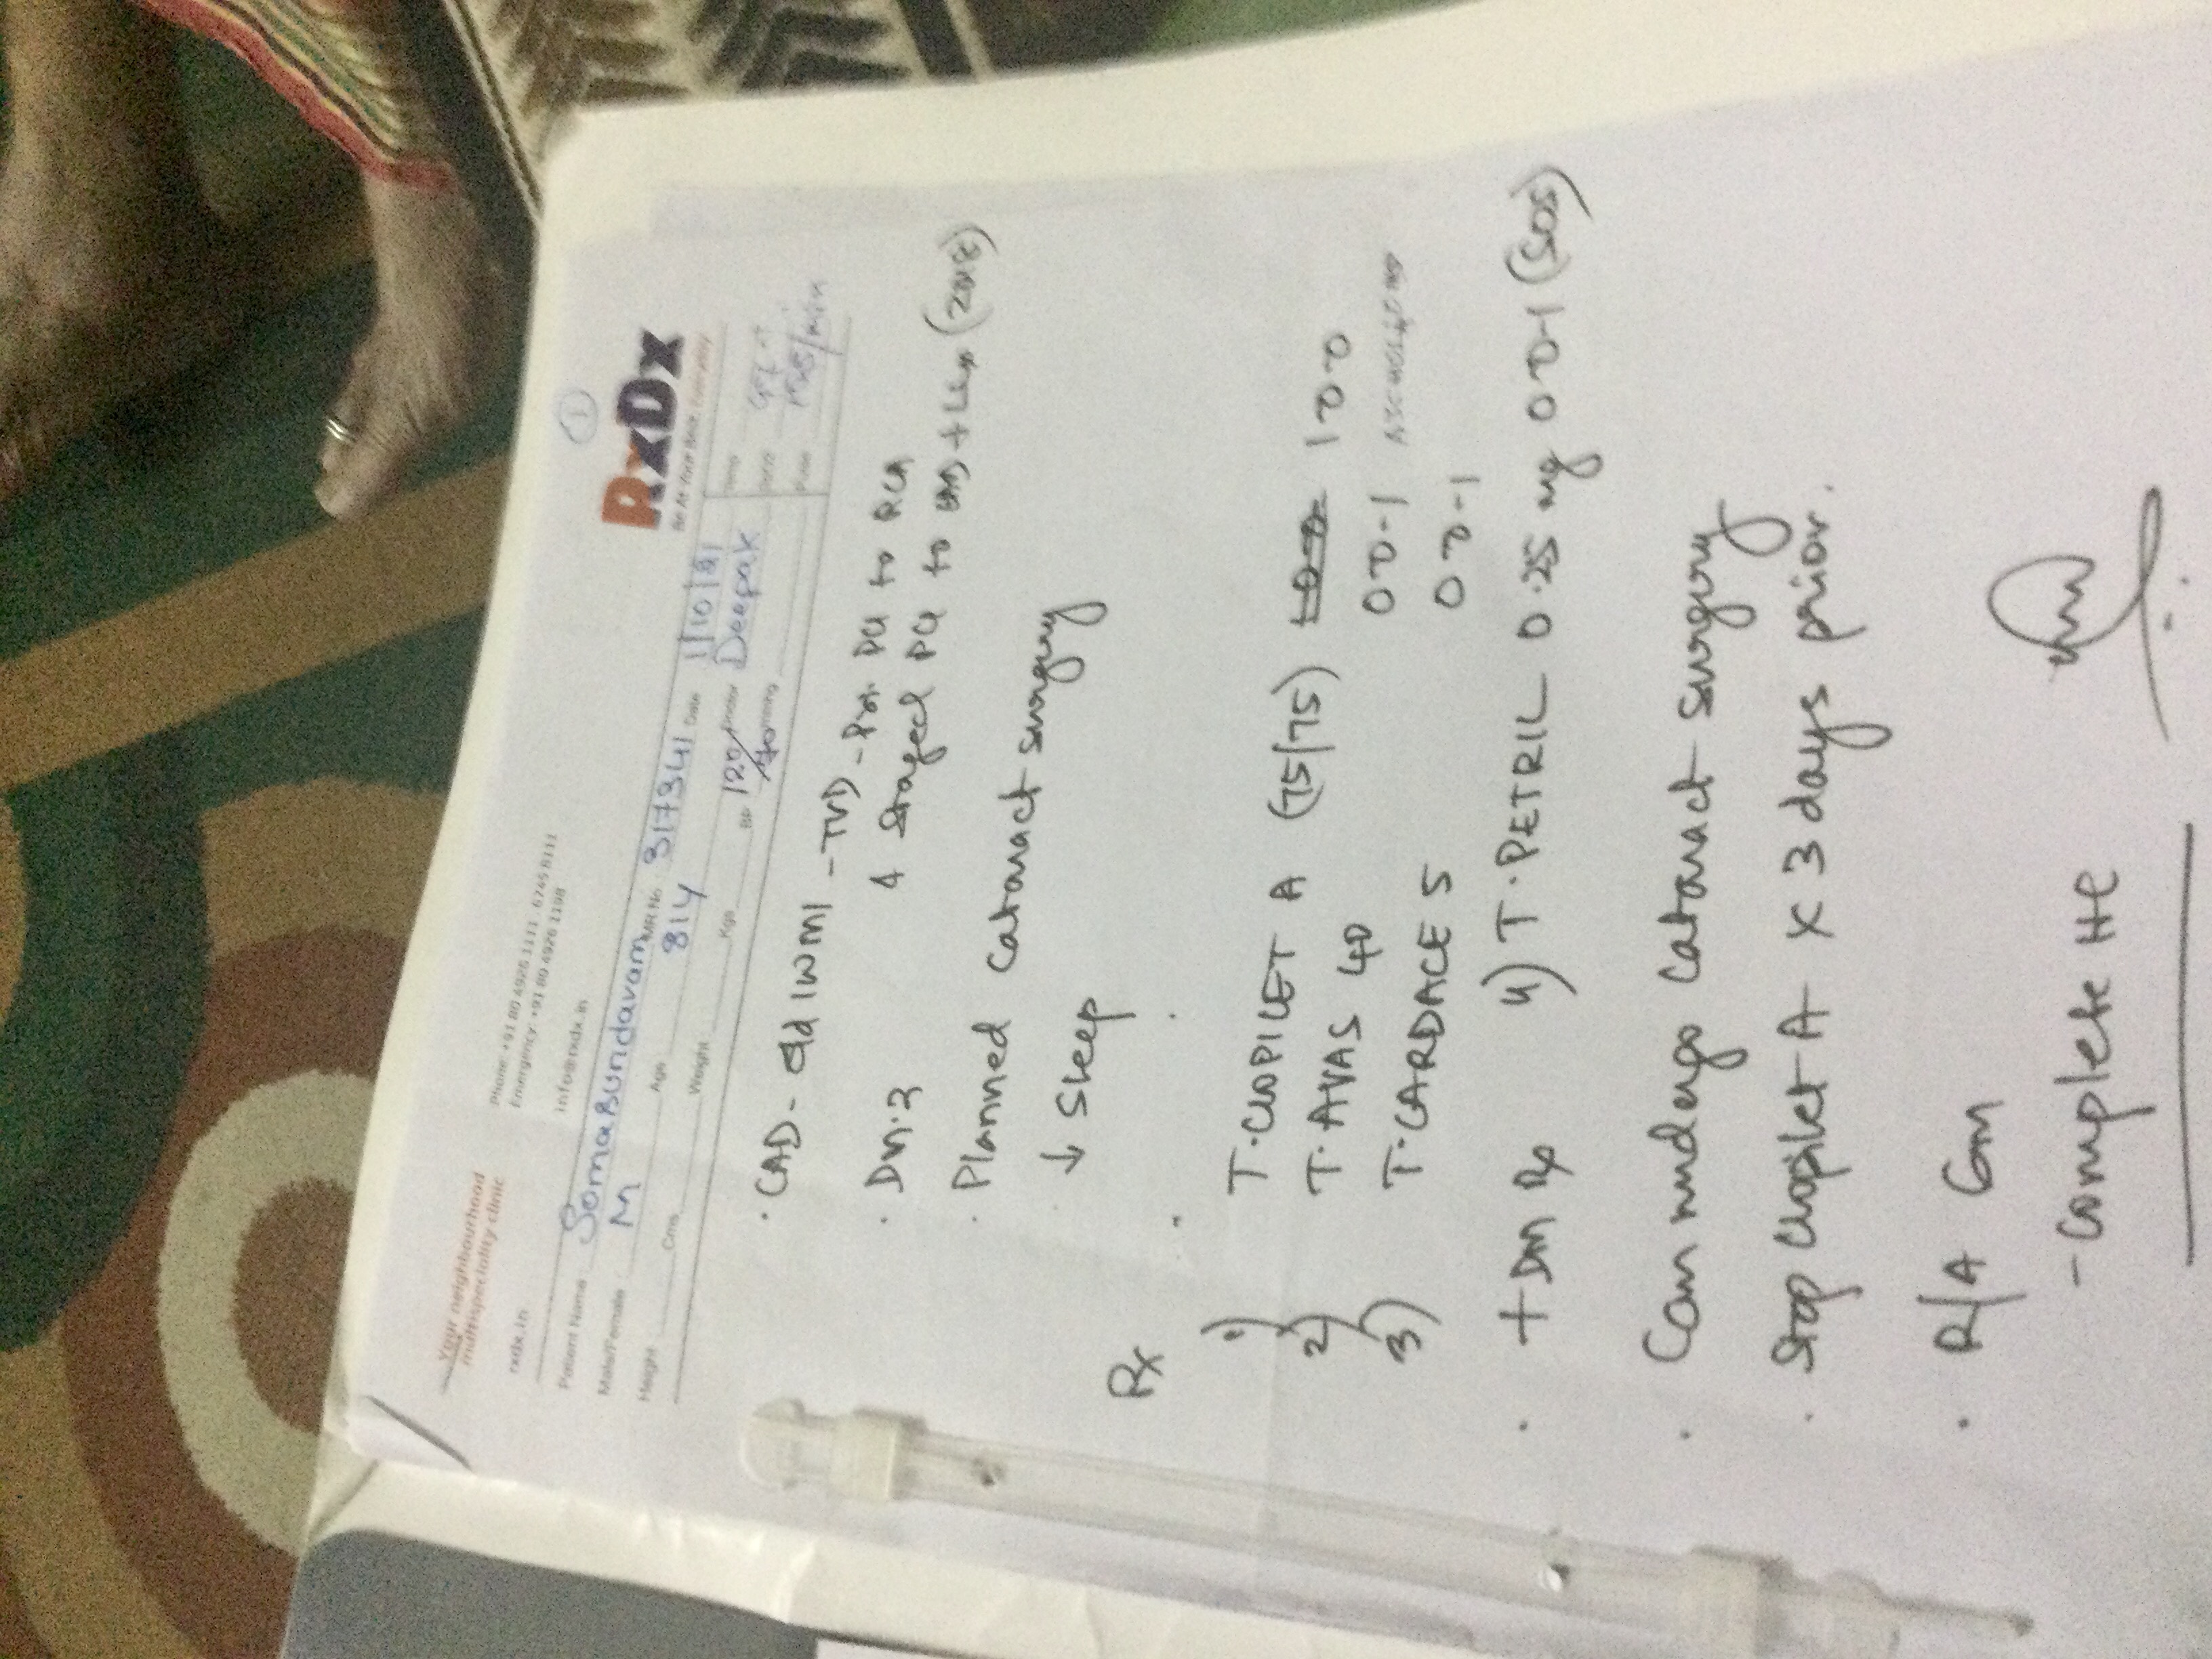 Your neighbourhood
multispeciality clinic
Phone: +91 80 4925 1111 - 6745 8111
Emergency +91 80 4926 1198
rxdx.in
info@rxdx.in
①
RxDx
Be At Your Best
Patient Name SomaSundavam MR No 317341 Date 1/10/21
Male/Female M Age 81Y Doctor Deepak
Height Cms Weight Kgs BP 120/
Pulse /min
· CAD - old IWMI - TVD - PCI to RCA
staged PCI to LAD + (2018)
· DM.2
· Planned cataract surgery
↓ sleep
Rx
1) T. CLOPILET A (75/75) 1-0-0
2) T. AVAS 40 0-0-1
3) T. CARDACE 5 0-0-1
· + DM Rx 4) T. PETRIL 0.25 mg 0-0-1 (SOS)
· Can undergo cataract surgery
· Stop Clopilet A x 3 days prior.
· R/A 6m
- complete HC